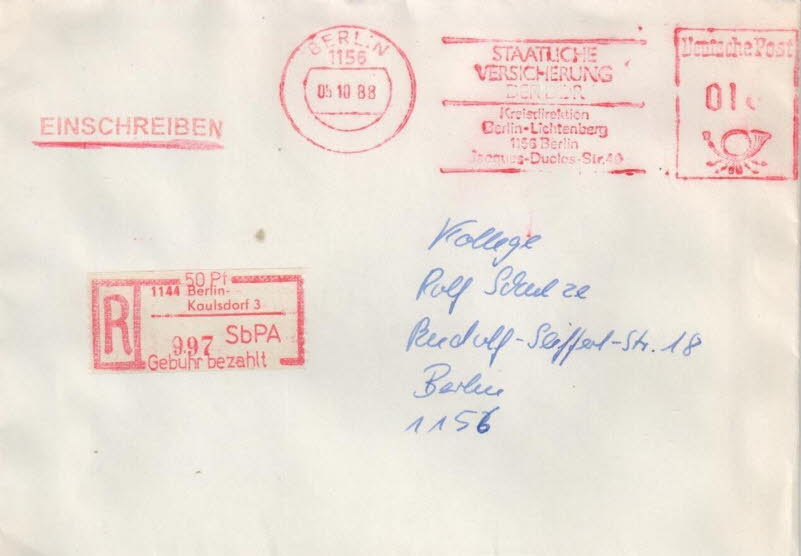 BERLIN
1156
05 10 88
STAATLICHE
VERSICHERUNG
DER DDR
Kreisdirektion
Berlin-Lichtenberg
1156 Berlin
Jacques-Duclos-Str. 49
Deutsche Post
EINSCHREIBEN
50 Pf
R
1144 Berlin-
Kaulsdorf 3
997 SbPA
Gebühr bezahlt
Kollege
Rolf Schulze
Rudolf-Seiffert-Str. 18
Berlin
1156